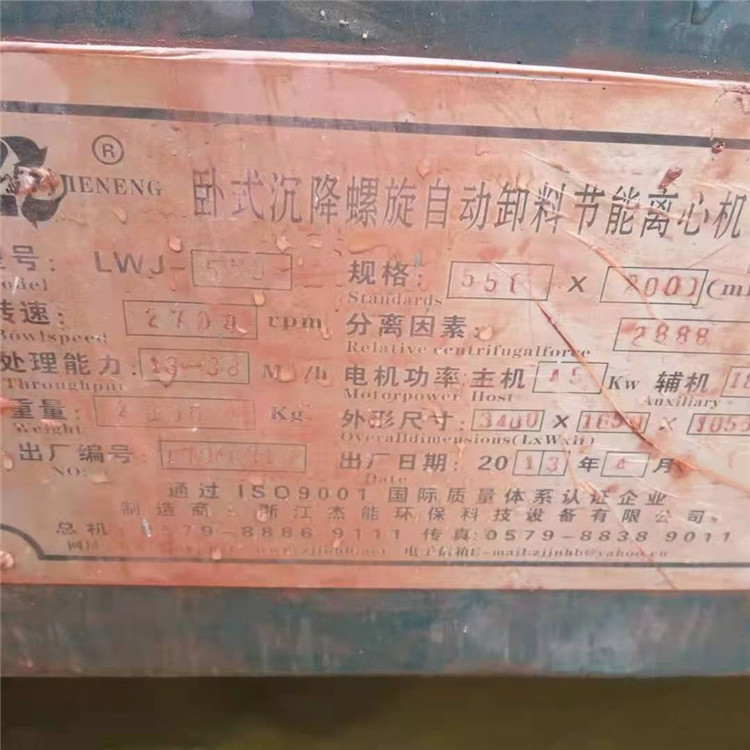 ® JIENENG 卧式沉降螺旋自动卸料节能离心机
型号: LWJ-550 规格: 550 X 2000 (m
Model Standards
转速: 2700 rpm 分离因素:
Bowlspeed Relative centrifugalforce
处理能力: 13-38 M³/h 电机功率: 主机 45 Kw 辅机
Throughput Motorpower Host Auxiliary
重量: Kg 外形尺寸: 3400 X 1650 X 1050
Weight Overalldimensions(LxWxH)
出厂编号: 出厂日期: 2013年4月
NO: Date
通过 ISO9001 国际质量体系认证企业
制造商: 浙江杰能环保科技设备有限公司
总机 0579-8886 9111 传真: 0579-8838 9011
网址 www.zjjnhb.net 电子信箱E-mail:zjjnhb@yahoo.cn